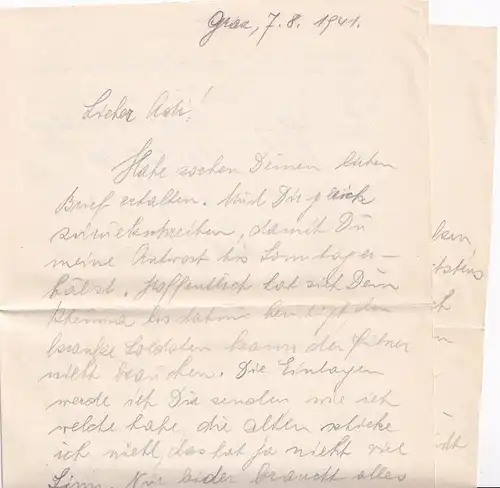 Graz, 7.8. 1941.
Lieber Adi!
Habe soeben Deinen lieben
Brief erhalten. Und Dir gleich
zurückschreiben, damit Du
meine Antwort bis Sonntag er-
hälst. Hoffentlich hat sich Dein
Rheuma bis dahin
kranke Soldaten kann der Führer
nicht brauchen. Die Einlagen
werde ich Dir senden wie ich
welche habe, die alten schicke
ich nicht, das hat ja nicht viel
Sinn. Nur leider braucht alles